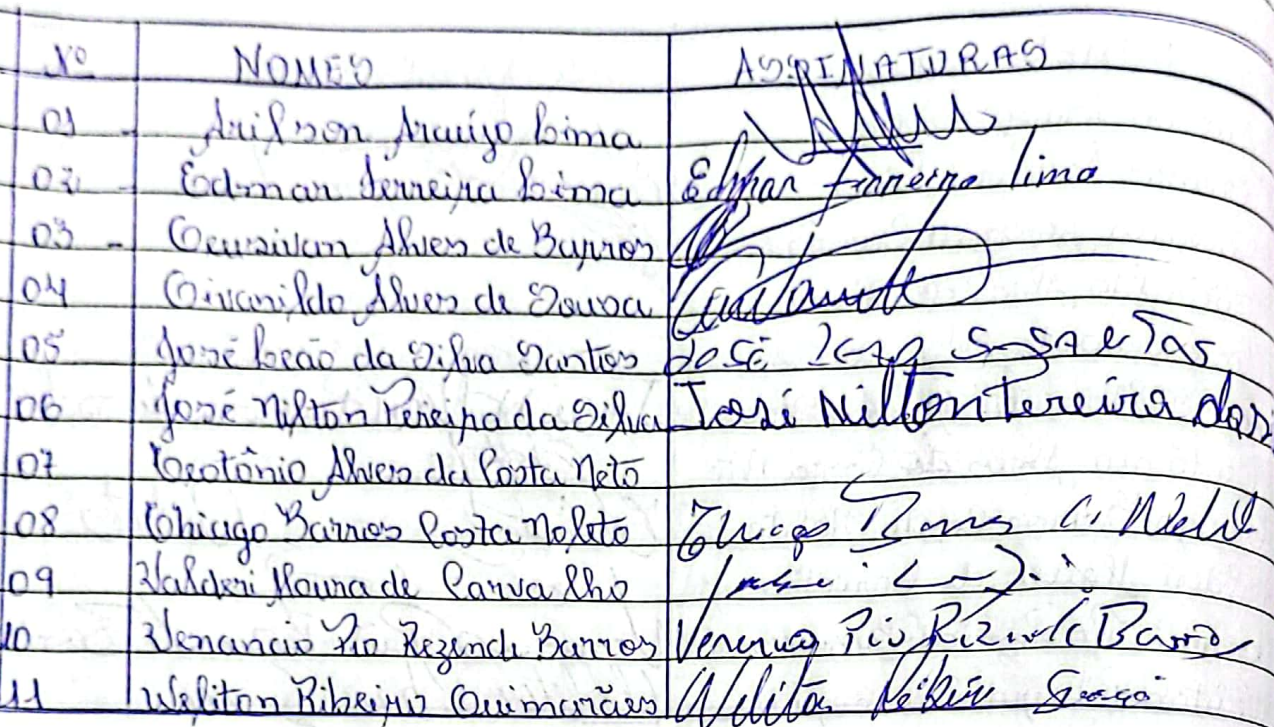 Nº NOMES ASSINATURAS
01 - Arilson Araújo Lima
02 - Edmar Ferreira Lima Edmar Ferreira lima
03 - Geusivan Alves de Barros
04 Givanildo Alves de Sousa
05 José Leão da Silva Santos José
06 José Nilton Pereira da Silva José Nilton Pereira das
07 Teotônio Alves da Costa Neto
08 Thiago Barros Costa Noleto Thiago Barros C. Nolet
09 Valderi Moura de Carvalho
10 Venancio Pio Rezende Barros Venancio Pio Rizende Barros
11 Weliton Ribeiro Guimarães Weliton Ribeiro